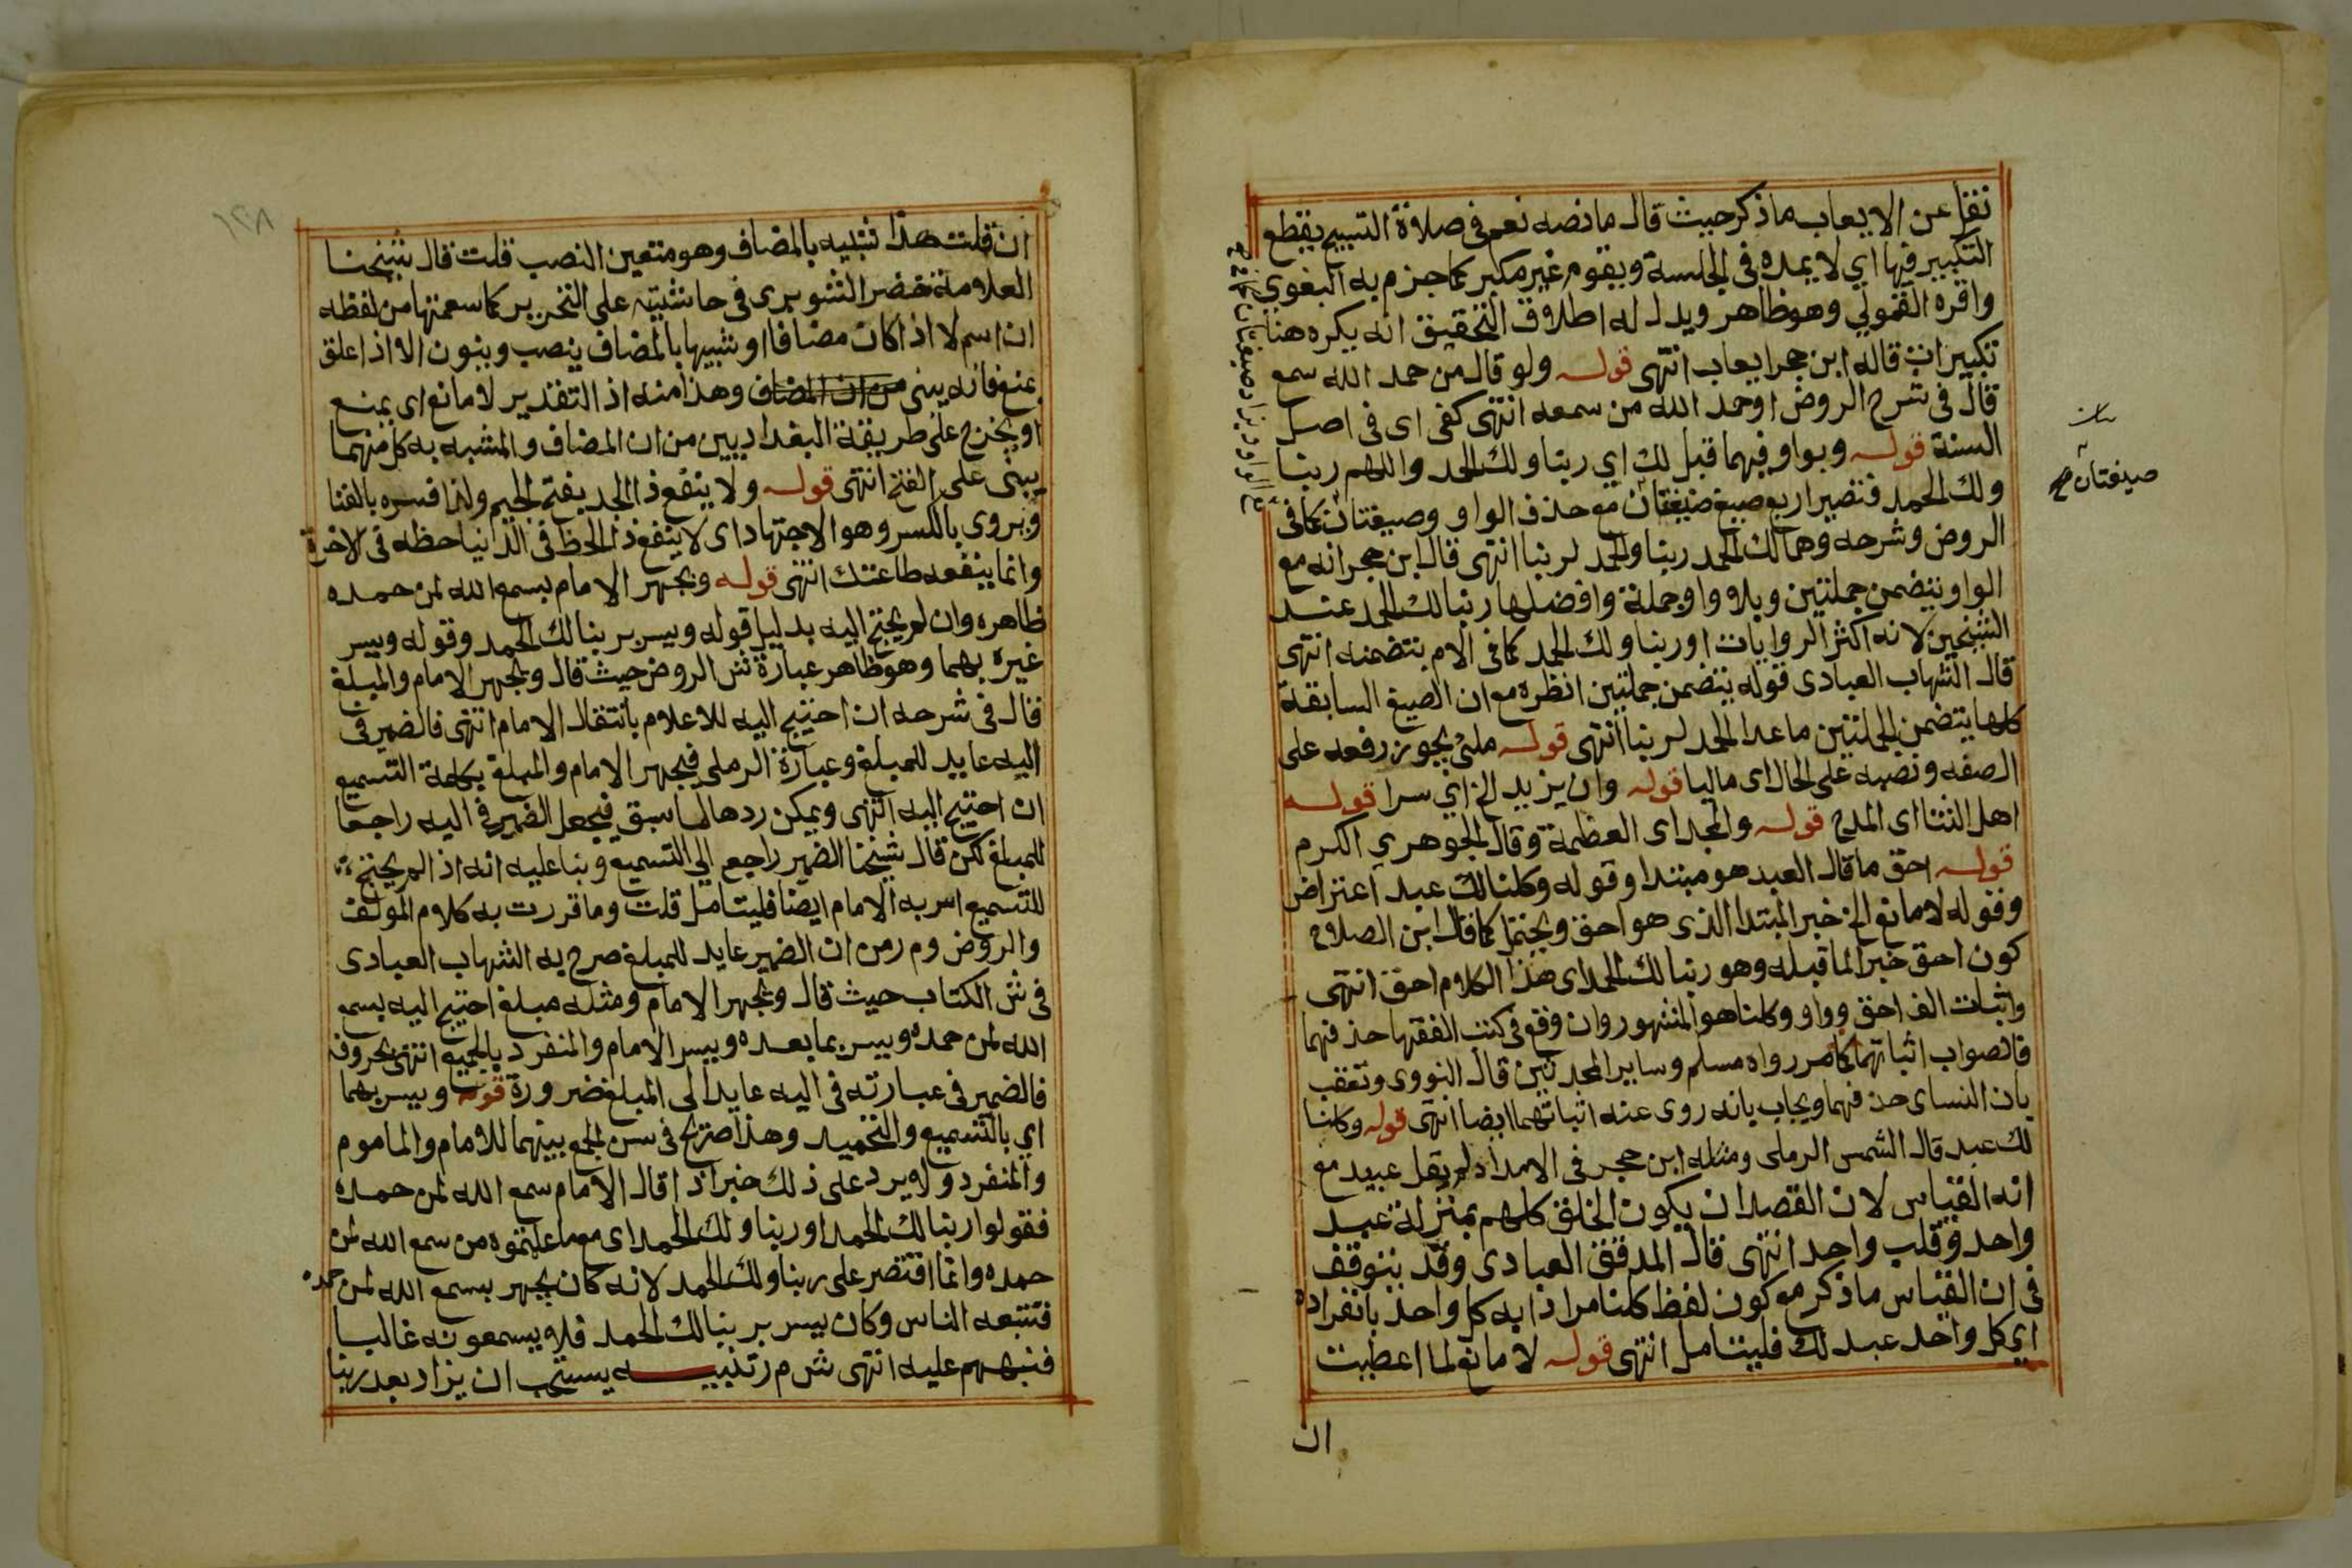 نقل عن الايعاب ما ذكر حيث قال ما نصه نعم في صلاة التسبيح يقطع
التكبير فيها اي لا يمده في الجلسة ويقوم غير مكبر كما جزم به البغوي
واقره القمولي وهو ظاهر ويدل له اطلاق التحقيق انه يكره هنا
تكبيرات قاله ابن حجر ايعاب انتهى قوله ولو قال من حمد الله سمع
قال في شرح الروض او حمد الله من سمعه انتهى كفى اى في اصل
السنة قوله وبواو فيهما قبل لك اي ربنا ولك الحمد واللهم ربنا
ولك الحمد فتصير اربع صيغ صيغتان مع حذف الواو وصيغتان كما في
الروض وشرحه وهما لك الحمد ربنا والحمد لربنا انتهى قال ابن حجر انه مع
الواو يتضمن جملتين وبلا واو جملة وافضلها ربنا لك الحمد عند
الشيخين لانه اكثر الروايات او ربنا ولك الحمد كما في الام بتضمنه انتهى
قال الشهاب العبادى قوله يتضمن جملتين انظره مع ان الصيغ السابقة
كلها يتضمن الجملتين ما عدا الحمد لربنا انتهى قوله ملئ يجوز رفعه على
الصفه ونصبه على الحال اى ماليا قوله وان يزيد الخ اي سرا قوله
اهل الثنا اى المدح قوله والمجد اى العظمة وقال الجوهري الكرم
قوله احق ما قال العبد هو مبتدا وقوله وكلنا لك عبد اعتراض
وقوله لا مانع الخ خبر المبتدا الذى هو احق ويحتمل كما قال ابن الصلاح
كون احق خبرا لما قبله وهو ربنا لك الحمد اى هذا الكلام احق انتهى
واثبات الف احق وواو وكلنا هو المشهور وان وقع في كتب الفقها حذفهما
فالصواب اثباتهما كما مر رواه مسلم وساير المحدثين قال النووى وتعقب
بان النساى حذفهما ويجاب بانه روى عنه اثباتهما ايضا انتهى قوله وكلنا
لك عبد قال الشمس الرملى ومثله ابن حجر في الامداد لم يقل عبيد مع
انه القياس لان القصد ان يكون الخلق كلهم بمنزلة عبد
واحد وقلب واحد انتهى قال المدقق العبادى وقد يتوقف
في ان القياس ما ذكر مع كون لفظ كلنا مرادا به كل واحد بانفراده
اي كل واحد عبد لك فليتامل انتهى قوله لا مانع لما اعطيت
ان
صيغتان صح
ان قلت هذا شبيه بالمضاف وهو متعين النصب قلت قال شيخنا
العلامة خضر الشوبرى في حاشيته على التحرير كما سمعتها من لفظه
ان اسم لا اذا كان مضافا او شبيها بالمضاف ينصب وينون الا اذا علق
بمنع فانه يبنى من ان المضاف وهذا منه اذ التقدير لا مانع اى يمنع
او يخرج على طريقة البغداديين من ان المضاف والمشبه به كل منهما
يبنى على الفتح انتهى قوله ولا ينفع ذا الجد بفتح الجيم ولذا فسره بالغنا
ويروى بالكسر وهو الاجتهاد اى لا ينفع ذا الحظ في الدنيا حظه في الاخرة
وانما ينفعه طاعتك انتهى قوله ويجهر الامام بسمع الله لمن حمده
ظاهره وان لم يحتج اليه بدليل قوله ويسر بربنا لك الحمد وقوله ويسر
غيره بهما وهو ظاهر عبارة ش الروض حيث قال ويجهر الامام والمبلغ
قال في شرحه ان احتيج اليه للاعلام بانتقال الامام انتهى فالضمير في
اليه عايد للمبلغ وعبارة الرملى فيجهر الامام والمبلغ بكلمة التسميع
ان احتيج اليه انتهى ويمكن ردها لما سبق فيجعل الضمير في اليه راجعا
للمبلغ لكن قال شيخنا الضمير راجع الي التسميع وبنا عليه انه اذا لم يحتج
للتسميع اسر به الامام ايضا فليتامل قلت وما قررت به كلام المولف
والروض وم ر من ان الضمير عايد للمبلغ صرح به الشهاب العبادى
في ش الكتاب حيث قال ويجهر الامام ومثله مبلغ احتيج اليه بسمع
الله لمن حمده ويسر بما بعده ويسر الامام والمنفرد بالجميع انتهى بحروفه
فالضمير في عبارته في اليه عايد الى المبلغ ضرورة قوله ويسر بهما
اي بالتسميع والتحميد وهذا صريح في سن الجمع بينهما للامام والماموم
والمنفرد ولا يرد على ذلك خبر اذا قال الامام سمع الله لمن حمده
فقولوا ربنا لك الحمد او ربنا ولك الحمد اى مع ما علمتموه من سمع الله لمن
حمده وانما اقتصر على ربنا ولك الحمد لانه كان يجهر بسمع الله لمن حمده
فتتبعه الناس وكان يسر بربنا لك الحمد فلا يسمعونه غالبا
فنبههم عليه انتهى ش م ر تنبيه يستحب ان يزاد بعد ربنا